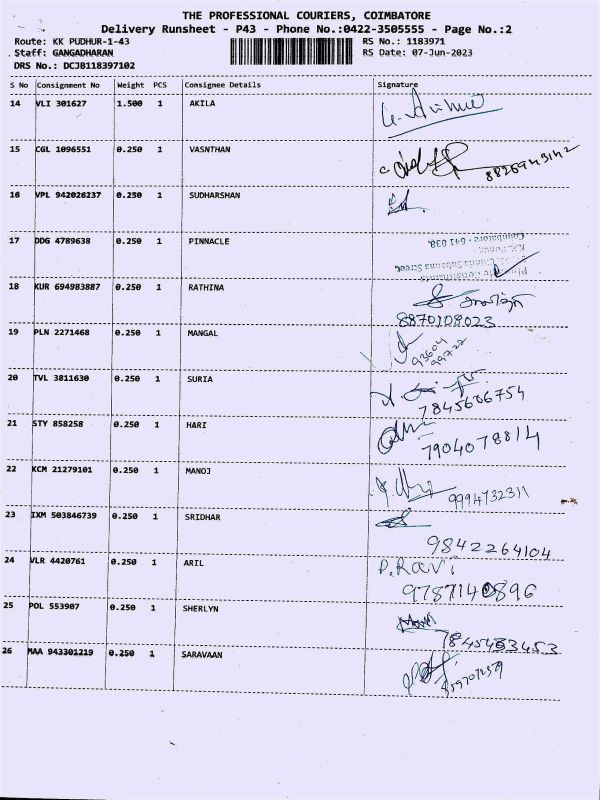 THE PROFESSIONAL COURIERS, COIMBATORE
Delivery Runsheet - P43 - Phone No.:0422-3505555 - Page No.:2
Route: KK PUDHUR-1-43 RS No.: 1183971
Staff: GANGADHARAN RS Date: 07-Jun-2023
DRS No.: DCJB118397102
S No Consignment No Weight PCS Consignee Details Signature
14 VLI 301627 1.500 1 AKILA
15 CGL 1096551 0.250 1 VASNTHAN
8826943142
16 VPL 942026237 0.250 1 SUDHARSHAN
17 DDG 4789638 0.250 1 PINNACLE
Coimbatore - 641 038.
18 KUR 694983887 0.250 1 RATHINA
8870108023
19 PLN 2271468 0.250 1 MANGAL
93604
99722
20 TVL 3811630 0.250 1 SURIA
7845686754
21 STY 858258 0.250 1 HARI
7904078814
22 KCM 21279101 0.250 1 MANOJ
9994732311
23 IXM 503846739 0.250 1 SRIDHAR
9842264104
24 VLR 4420761 0.250 1 ARIL P.Ravi
9787140896
25 POL 553907 0.250 1 SHERLYN
7845483453
26 MAA 943301219 0.250 1 SARAVAAN